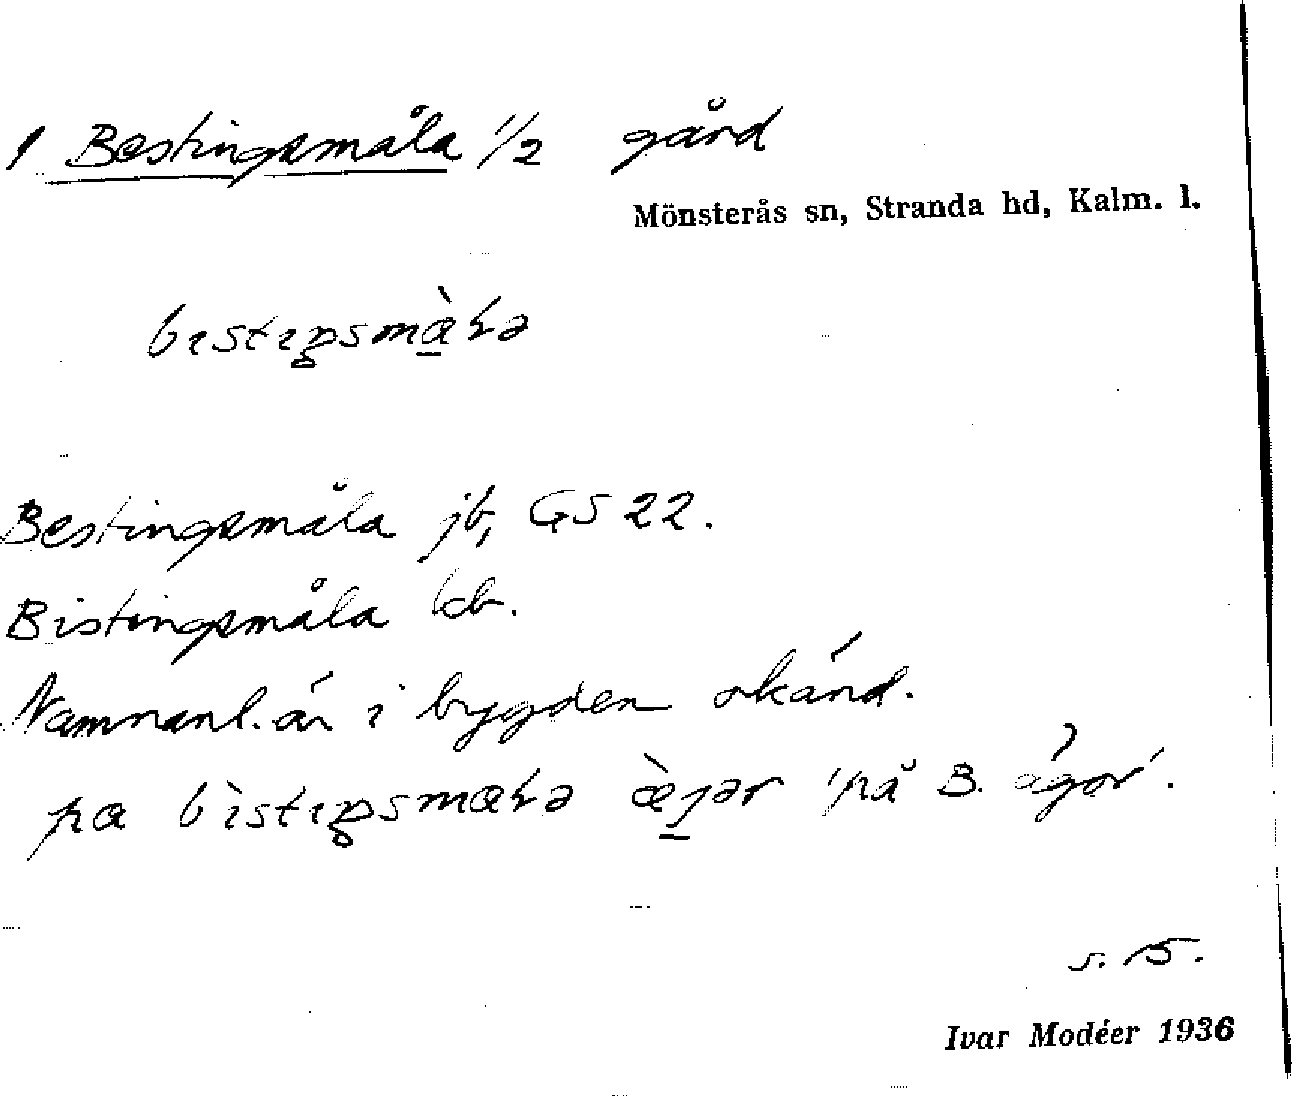 1 Bestingsmåla 1/2 gård
Mönsterås sn, Stranda hd, Kalm. l.
bɪstɪŋsmàɫə
Bestingsmåla jb, GS 22.
Bistingsmåla kb.
Namnanl. är i bygden okänd.
pa bìstɪŋsmaɫə æ̀ɡər 'på B. ägor'.
s. 15.
Ivar Modéer 1936